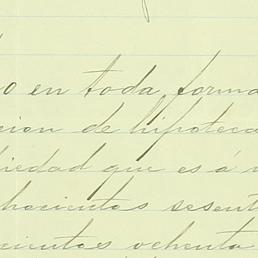 o en toda forma
cion de hipoteca
piedad que es á
hocientos sesent
cientos ochenta